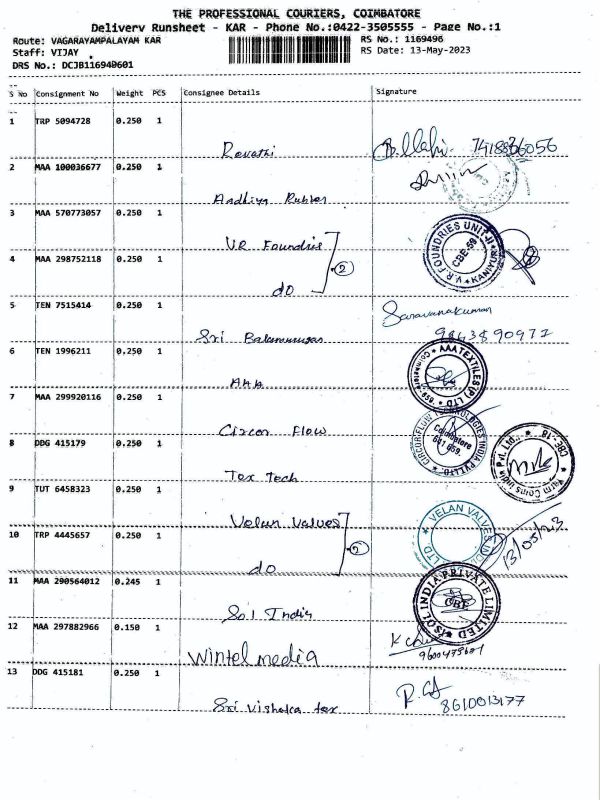 THE PROFESSIONAL COURIERS, COIMBATORE
Delivery Runsheet - KAR - Phone No.:0422-3505555 - Page No.:1
Route: VAGARAYAMPALAYAM KAR
RS No.: 1169496
Staff: VIJAY
RS Date: 13-May-2023
DRS No.: DCJB116940601
S No Consignment No Weight PCS Consignee Details Signature
1 TRP 5094728 0.250 1
Revathi 7418836056
2 MAA 100036677 0.250 1
Aadhiya Rubber
3 MAA 570773057 0.250 1
VR Foundris
V.R FOUNDRIES UNIT-II KANIYUR CBE-59
4 MAA 298752118 0.250 1
do 2
5 TEN 7515414 0.250 1
Saravanakumar
Sri Balamurugan 9843890972
6 TEN 1996211 0.250 1
AAA
AAA TEXTILES (P) LTD Coimbatore 659
7 MAA 299920116 0.250 1
Circor Flow
CIRCOR FLOW TECHNOLOGIES INDIA PVT.LTD. Coimbatore 641 659.
8 DDG 415179 0.250 1
Tex Tech
Coins India Pvt. Ltd., CBE-18
9 TUT 6458323 0.250 1
Velan Valves
VELAN VALVES INDIA LTD
10 TRP 4445657 0.250 1
do 2
13/05/23
11 MAA 290564012 0.245 1
Sol India
SOL INDIA PRIVATE LIMITED CBE
12 MAA 297882966 0.150 1
Wintel media
13 DDG 415181 0.250 1
Sri Vishaka tex 8610013177